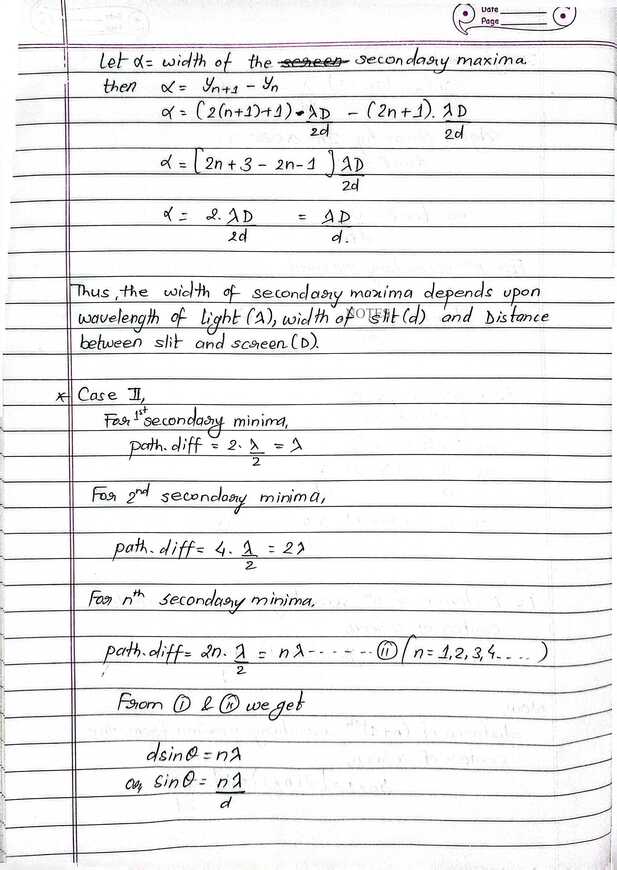 Date
Page
Let α = width of the screen secondary maxima
then α = yn+1 - yn
α = (2(n+1)+1) • λD/2d - (2n+1). λD/2d
α = [2n+3 - 2n-1] λD/2d
α = 2. λD/2d = λD/d.
Thus, the width of secondary maxima depends upon
wavelength of light (λ), width of slit (d) and Distance
NOTES
between slit and screen (D).
* Case II,
For 1st secondary minima,
path.diff = 2. λ/2 = λ
For 2nd secondary minima,
path.diff = 4. λ/2 = 2λ
For nth secondary minima,
path.diff = 2n. λ/2 = nλ ------ (ii) (n = 1,2,3,4....)
From (i) & (ii) we get
dsinθ = nλ
or, sinθ = nλ/d